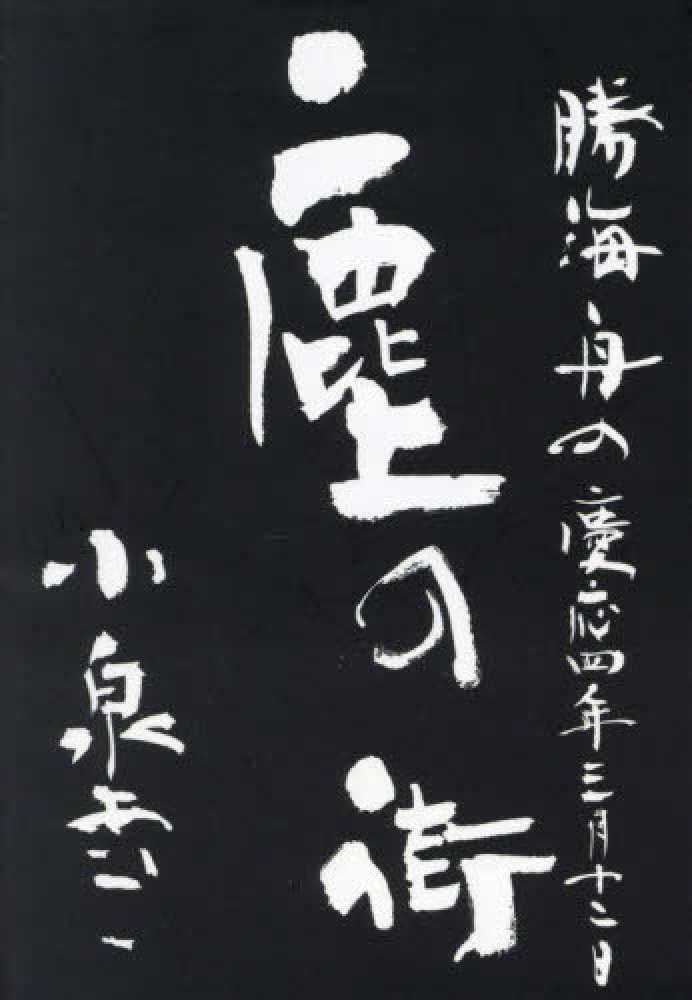 勝海舟の慶応四年三月十二日
塵の街
小泉